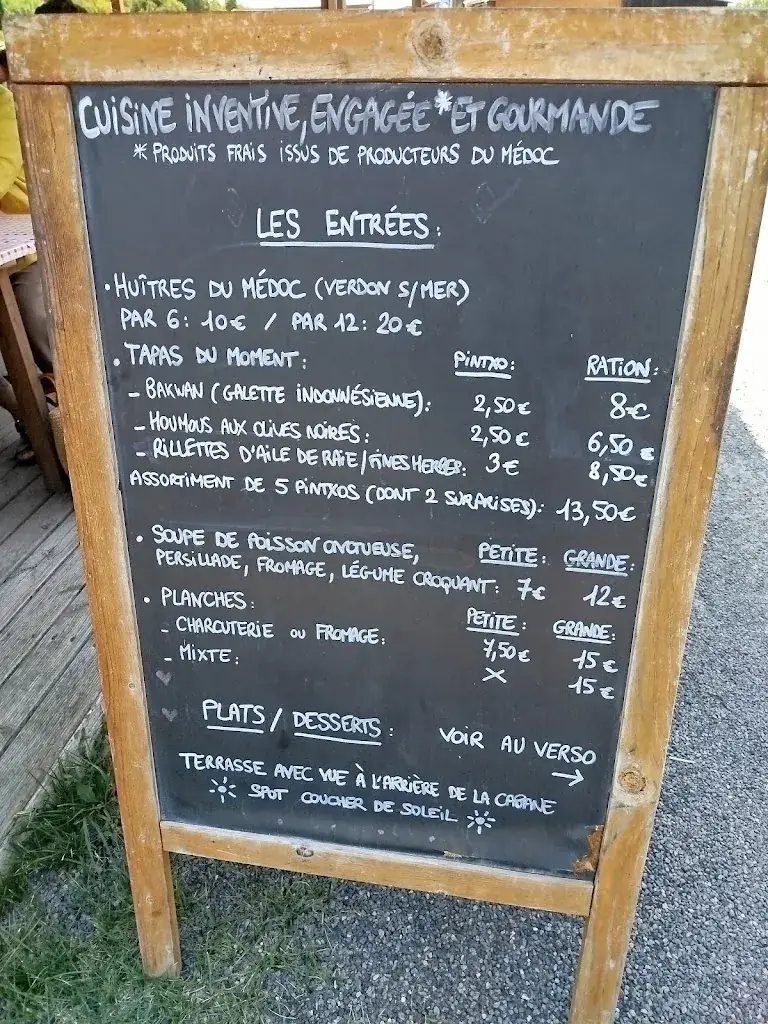 CUISINE INVENTIVE, ENGAGÉE * ET GOURMANDE
* PRODUITS FRAIS ISSUS DE PRODUCTEURS DU MÉDOC
LES ENTRÉES :
• HUÎTRES DU MÉDOC (VERDON S/MER)
PAR 6 : 10€ / PAR 12 : 20€
• TAPAS DU MOMENT : PINTXO : RATION :
- BAKWAN (GALETTE INDONNÉSIENNE) : 2,50€ 8€
- HOUMOUS AUX OLIVES NOIRES : 2,50€ 6,50€
- RILLETTES D'AILE DE RAIE / FINES HERBES : 3€ 8,50€
ASSORTIMENT DE 5 PINTXOS (DONT 2 SURPRISES) : 13,50€
• SOUPE DE POISSON ONCTUEUSE, PETITE : GRANDE :
PERSILLADE, FROMAGE, LÉGUME CROQUANT : 7€ 12€
• PLANCHES : PETITE : GRANDE :
- CHARCUTERIE OU FROMAGE : 7,50€ 15€
- MIXTE : X 15€
PLATS / DESSERTS : VOIR AU VERSO →
TERRASSE AVEC VUE À L'ARRIÈRE DE LA CABANE
SPOT COUCHER DE SOLEIL